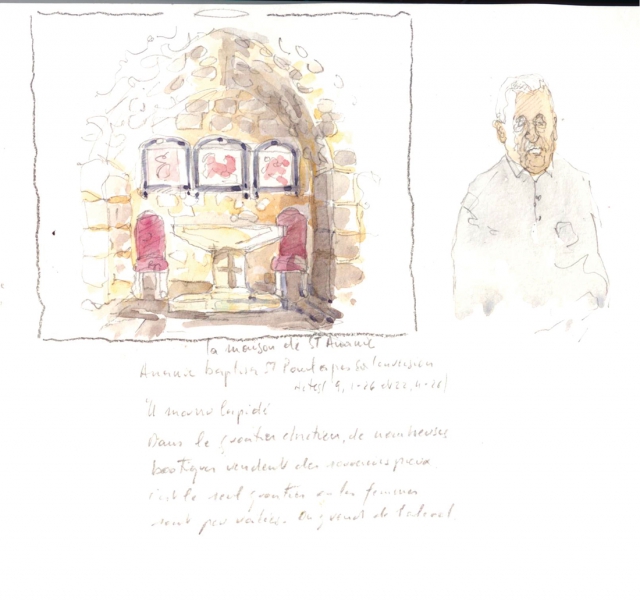 la maison de St Ananie
Ananie baptisa St Paul après sa conversion
Actes 9, 1-26 et 22, 4-
Il mourra lapidé
Dans le quartier chrétien, de nombreuses
boutiques vendent des souvenirs pieux.
c'est le seul quartier où les femmes
sont peu voilées. On y vend de l'alcool